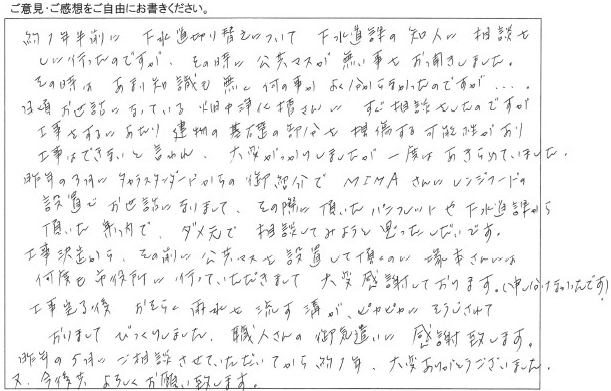 ご意見・ご感想をご自由にお書きください。
約1年半前に 下水道切り替えについて 下水道課の知人に 相談を
しに行ったのですが、その時に 公共マスが無い事をお聞きしました。
その時は あまり知識も無く 何の事か よく分からなかったのですが....
日頃お世話になっている 畑中浄化槽さんに すぐ相談をしたのですが
工事をするにあたり 建物の基礎の部分を 損傷する可能性があり
工事はできないと言われ、大変がっかりしましたが 一度はあきらめていました。
昨年の3月に タカラスタンダードからの御紹介で MIMAさんに レンジフードの
設置で お世話になりまして、その際に頂いたパンフレットや 下水道課から
頂いた案内で、ダメ元で 相談してみようと思ったしだいです。
工事決定から、その前に 公共マスを設置して頂くのに 塚本さんには
何度も市役所に 行っていただきまして 大変感謝しております。(申し分けなかったです)
工事完了後 おそらく雨水を流す溝が、ピカピカに そうじされて
おりまして びっくりしました。職人さんの御気遣いに 感謝致します。
昨年の5月に ご相談させていただいてから 約1年、大変ありがとうございました。
又、今後共 よろしくお願い致します。